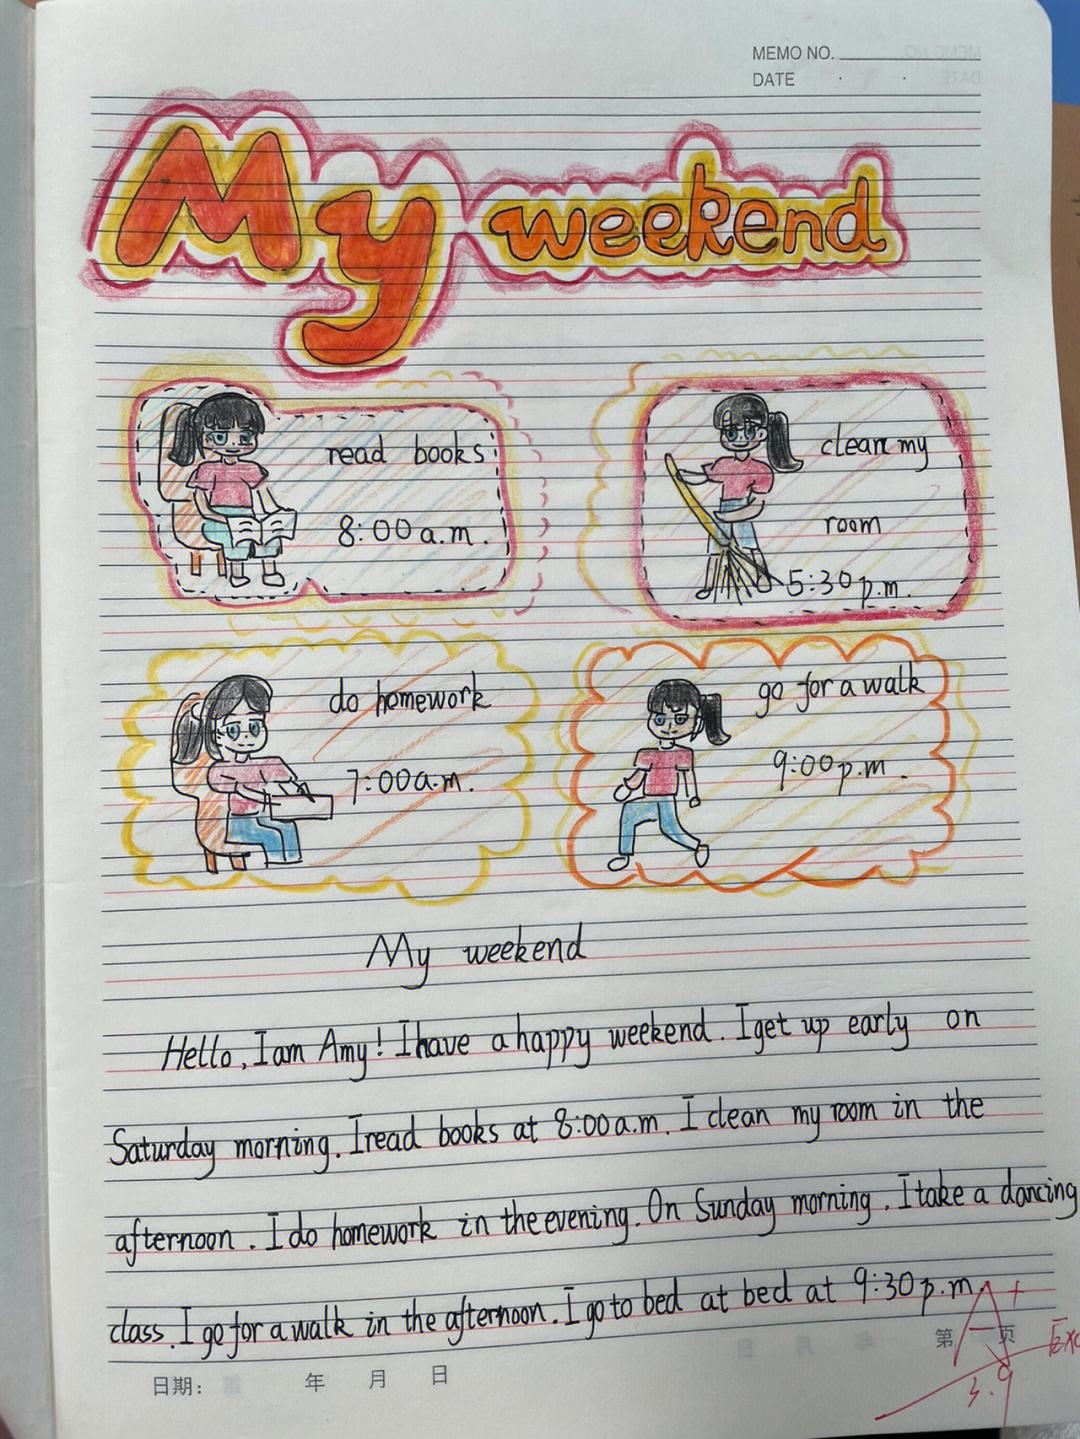 MEMO NO.
DATE
My weekend
read books
8:00a.m.
clean my
room
5:30p.m.
do homework
7:00a.m.
go for a walk
9:00p.m.
My weekend
Hello, I am Amy! I have a happy weekend. I get up early on
Saturday morning. I read books at 8:00a.m. I clean my room in the
afternoon. I do homework in the evening. On Sunday morning. I take a dancing
class. I go for a walk in the afternoon. I go to bed at bed at 9:30p.m.
A+
第 页
3.9
日期: 年 月 日